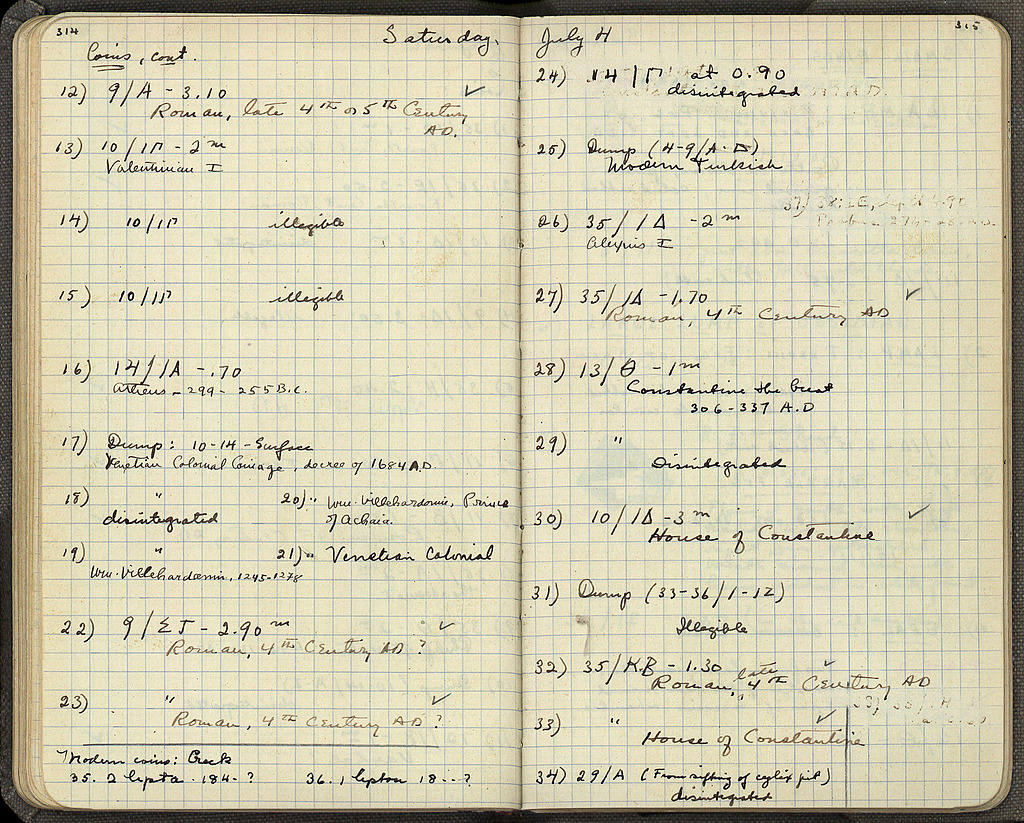 314
Saturday,
Coins, cont.
12) 9/A - 3.10 ✓
Roman, late 4th or 5th Century
AD.
13) 10/ΙΓ - 2m
Valentinian I
14) 10/ΙΓ illegible
15) 10/ΙΓ illegible
16) 14/ΙΑ - .70
Athens - 299 - 255 B.C.
17) Dump: 10-14 - Surface
Venetian Colonial Coinage, decree of 1684 A.D.
18) " disintegrated
19) "
Wm. Villehardouin, 1245-1278
20) " Wm. Villehardouin, Prince
of Achaia.
21) " Venetian Colonial
22) 9/ΣΤ - 2.90m ✓
Roman, 4th Century AD ?
23) " ✓
Roman, 4th Century AD ?
Modern coins: Greek
35. 2 lepta - 184- ? 36. 1 lepton 18-- ?
315
July 4
24) 14/ΙΓ at 0.90
disintegrated
25) Dump (4-9/A-Δ)
Modern Turkish
26) 35/ΙΔ - 2m
Alexius I
27) 35/ΙΔ - 1.70 ✓
Roman, 4th Century AD
28) 13/Θ - 1m
Constantine the Great
306-337 A.D
29) "
Disintegrated
30) 10/ΙΔ - 3m ✓
House of Constantine
31) Dump (33-36/1-12)
Illegible
32) 35/ΚΒ - 1.30 ✓
Roman, late 4th Century AD
33) " ✓
House of Constantine
34) 29/A (From sifting of cylix pit)
disintegrated